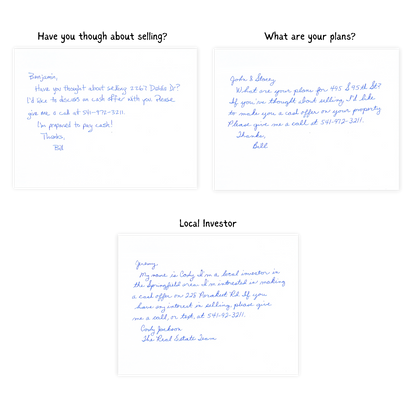 Have you though about selling?
Benjamin,
Have you thought about selling 2267 Dakila Dr?
I'd like to discuss a cash offer with you. Please
give me a call at 541-972-3211.
I'm prepared to pay cash!
Thanks,
Bill
What are your plans?
Jada & Stacey
What are your plans for 495 S 95th St?
If you've thought about selling, I'd like
to make you a cash offer on your property.
Please give me a call at 541-972-3211.
Thanks,
Bill
Local Investor
Jeremy,
My name is Cody. I'm a local investor in
the Springfield area. I'm interested in making
a cash offer on 228 Rd. If you
have any interest in selling, please give
me a call, or text, at 541-92-3211.
Cody Jackson
The Real Estate Team